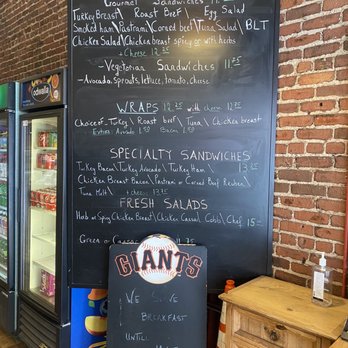 Gourmet Sandwiches
Turkey Breast \ Roast Beef \ Egg Salad
Smoked ham \ Pastrami \ Corned beef \ Tuna Salad \ BLT
Chicken Salad \ Chicken breast spicy or with herbs
+ Cheese
- Vegetarian Sandwiches 11.25
- Avocado, sprouts, lettuce, tomato, cheese
WRAPS 12.25 with cheese 12.75
Choice of - Turkey \ Roast beef \ Tuna \ Chicken breast
Extras: Avocado 1.50 Bacon 1.50
SPECIALTY SANDWICHES
Turkey Bacon \ Turkey Avocado \ Turkey Ham \ 13.25
Chicken Breast Bacon \ Pastrami or Corned Beef Reuben \
Tuna Melt \ + cheese
FRESH SALADS
Herb or Spicy Chicken Breast \ Chicken Caesar \ Cobb \ Chef 15.-
Green or Caesar 11.75
odwalla
GIANTS
WE SERVE
BREAKFAST
UNTIL